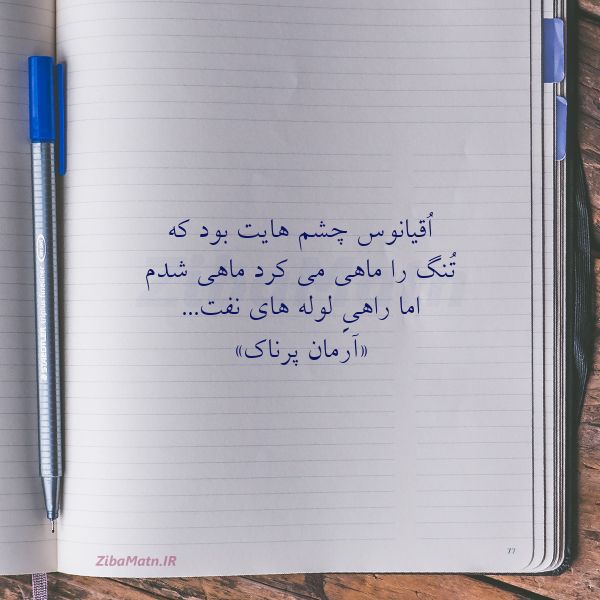 اُقیانوس چشم هایت بود که
تُنگ را ماهی می کرد ماهی شدم
اما راهیِ لوله های نفت...
«آرمان پرناک»
ZibaMatn.IR
77